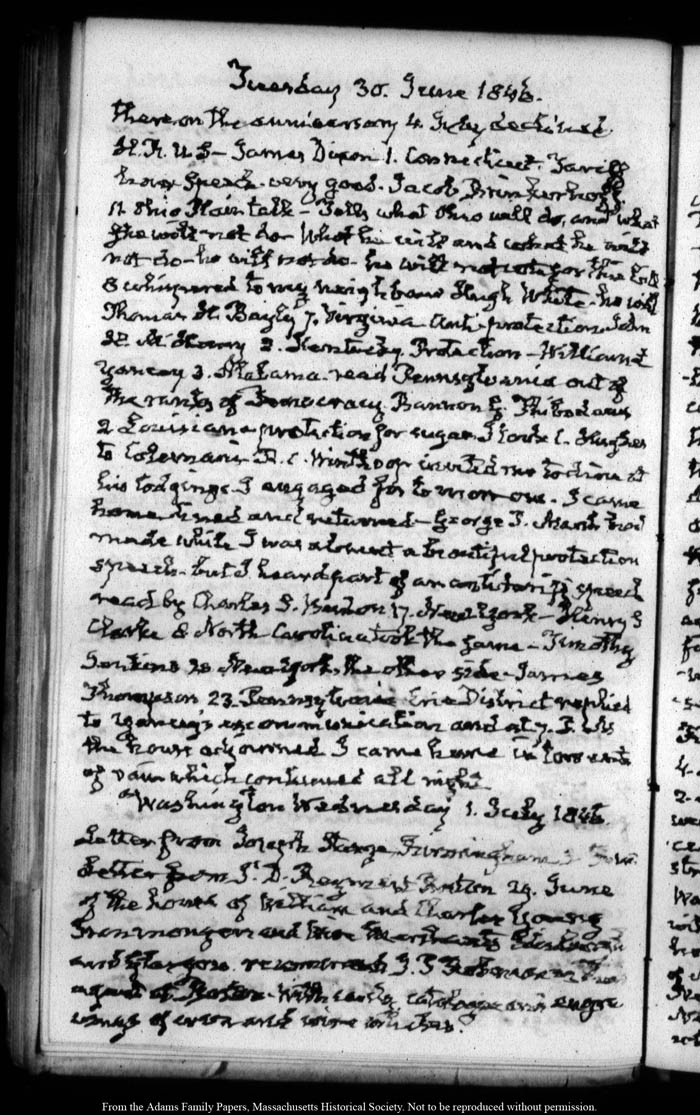 Tuesday 30. June 1846.
there on the anniversary 4. July declined.
H. R. U S – James Dixon 1. Connecticut. Tariff
hour speech. very good. Jacob Brinkerhoff
11 Ohio Plain talk – Tells what Ohio will do, and what
She will not do – What he will and what he will
not do – he will not do – he will not vote for this bill
& whispered to my neighbour Hugh White – he will
Thomas H. Bayly 7. Virginia anti-protection. John
H. McHenry 2. Kentucky Protection – William L
Yancey 3. Alabama read Pennsylvania out of
the ranks of Democracy Bannon G. Thibodaux
2 Louisiana protection for sugar. I took C. Hughes
to Coleman's. R. C. Winthrop invited me to dine at
his lodgings. I engaged for to morrow. I came
home dined and returned – George P. Marsh had
made while I was absent a beautiful protection
speech – but I heard part of an antitariff speech
read by Charles S. Benton 17. New York – Henry S
Clarke 8 North Carolina took the same – Timothy
Jenkins 20 New York, the other side – James
Thompson 23. Pennsylvania Erie District replied
to Yancey's excommunication and at 7. P. M.
the house adjourned I came home in torrents
of rain which continued all night
Washington Wednesday 1. July 1846
Letter from Joseph Sturge, Birmingham 3
Letter from Boston 29. June
of the house of William and Charles Young
Iron mongers and Wire Merchants Edinburgh
and Glasgow. recommends
agent at Boston. With cards, catalogue and engra
vings of iron and wire
From the Adams Family Papers, Massachusetts Historical Society. Not to be reproduced without permission.